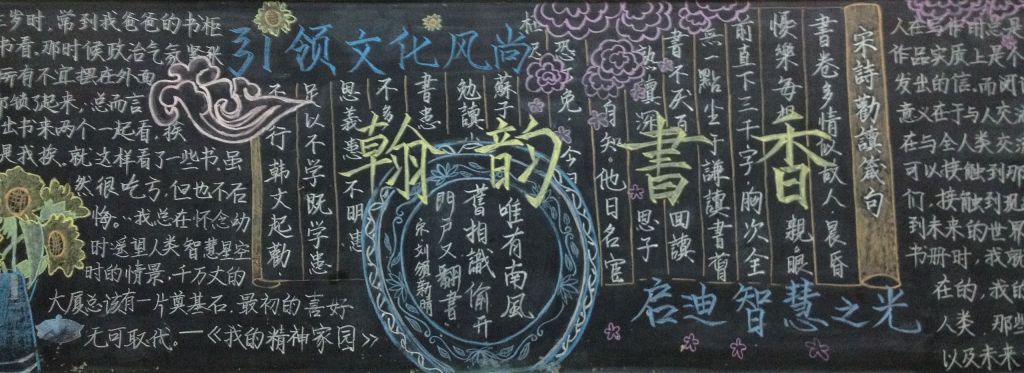 岁时,常到我爸爸的书柜
书看.那时候政治气氛紧张
所有不宜摆在外面
锁了起来,总而言
出书来两个一起看,挨
是我挨.就这样看了一些书.虽
然很吃亏,但也不后
悔。我总在怀念幼
时遥望人类智慧星空
时的情景.千万丈的
大厦总该有一片奠基石.最初的喜好
无可取代。—《我的精神家园》
引领文化风尚
翰韵書香
宋詩勸讀箴句
書卷多情似故人晨昏
憂樂每相親眼
前直下三千字胸次全
無一點尘 讀書
書不厌百回讀
熟讀深思子
自知他日名宦
恐免
蘇子
勉讀
書患
不多
思義患不明.患
足以不学既学患
不行韩丈起勸
唯有南風
舊相識偷开
門户又翻書.
启迪智慧之光
人在写作时总是
作品实质上是不
发出的信.而阅
意义在于与人交流
在与全人类交流
可以接触到那
们.接触到现
到未来的世界
书册时,我
在的,我的
人类.那些
以及未来